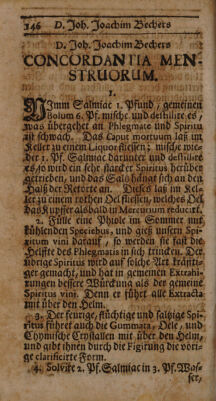 146 D. Joh. Joachim Bechers
D. Joh. Joachim Bechers
CONCORDANTIA MEN-
STRUORUM.
1.
Nimm Salmiac 1. Pfund, gemeinen
Bolum 6. Pf. mische und destillire es,
was übergehet an Phlegmate und Spiritu
ist schwach. Das Caput mortuum laß im
Keller zu einem Liquor fliessen; mische wie-
der 1. Pf. Salmiac darunter und destillire
es, so wird ein sehr starcker Spiritus herüber
getrieben, und das Saltz hängt sich an den
Halß der Retorte an. Dieses laß im Kel-
ler zu einem rothen Oel fliessen, welches Oel
das Kupfer alsbald in Mercurium reducirt.
2. Fülle eine Phiole im Sommer mit
kühlenden Speciebus, und gieß unsern Spi-
ritum vini darauf, so werden sie fast die
Helffte des Phlegmatis in sich trincken. Der
übrige Spiritus wird auf solche Art kräffti-
ger gemacht, und hat in gemeinen Extrahi-
rungen bessere Würckung als der gemeine
Spiritus vini. Denn er führt alle Extracta
mit über den Helm.
3. Der feurige, flüchtige und saltzige Spi-
ritus führet auch die Gummata, Oele, und
Chymische Crystallen mit über den Helm,
und gibt ihnen durch die Figirung die vori-
ge clarificirte Form.
4. Solvire 2. Pf. Salmiac in 3. Pf. Was-
ser,